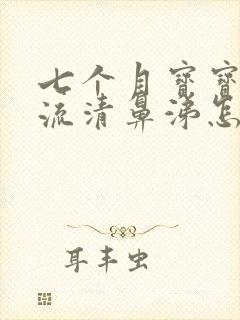 七个月宝宝
流清鼻涕怎
耳丰虫